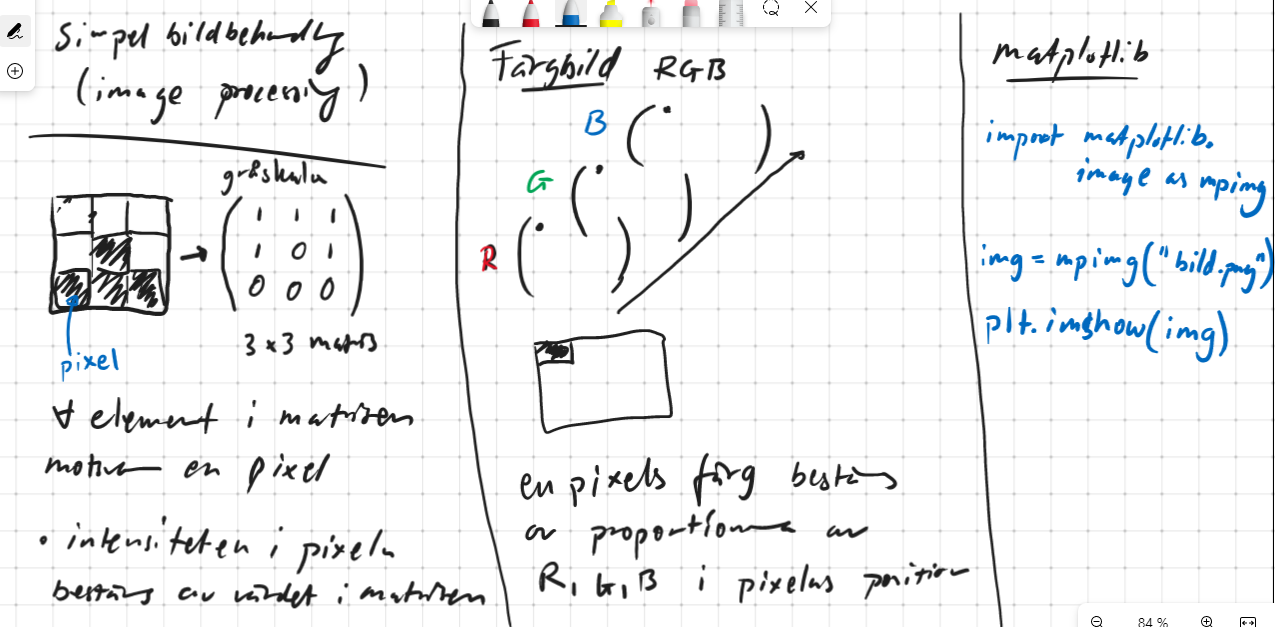 Simpel bildbehandling
(image processing)
gråskala
1 1 1
1 0 1
0 0 0
3 x 3 matris
pixel
∀ element i matrisen
motsvarar en pixel
• intensiteten i pixeln
bestäms av värdet i matrisen
Färgbild RGB
B
G
R
en pixels färg bestäms
av proportionerna av
R, G, B i pixelns position
matplotlib
improt matplotlib.
image as mpimg
img = mpimg("bild.png")
plt.imshow(img)
84 %